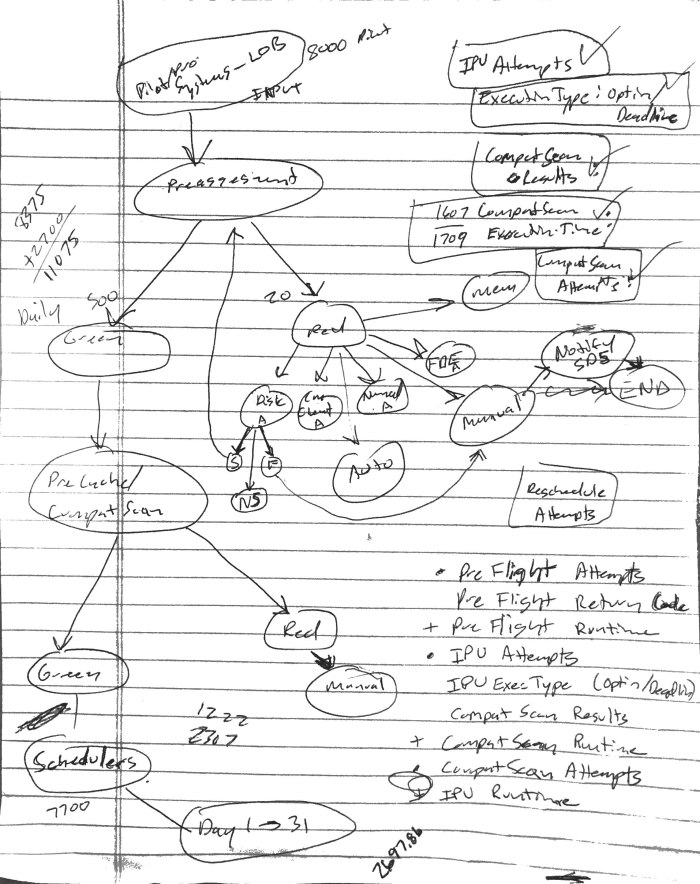 Pilot/pro
Systems - LOB
INPUT
8000 Pilot
IPU Attempts
ExecutionType: Optin
Deadline
CompatScan
Results
1607 CompatScan
1709 Execution Time:
CompatScan
Attempts:
Preassesment
8375
+2700
11075
Daily
500
Green
20
Red
Mem
FDE
A
Disk
A
Client
A
A
Auto
Manual
Notify
SDS
END
S
F
NS
Reschedule
Attempts
PreCached
CompatScan
• Pre Flight Attempts
Pre Flight Return Code
+ Pre Flight Runtime
• IPU Attempts
IPU ExecType (Optin/Deadline)
Compat Scan Results
+ Compat Scan Runtime
• Compat Scan Attempts
+ IPU Runtime
Red
Manual
Green
1222
2307
Schedulers
7700
Day 1 → 31
2697.86